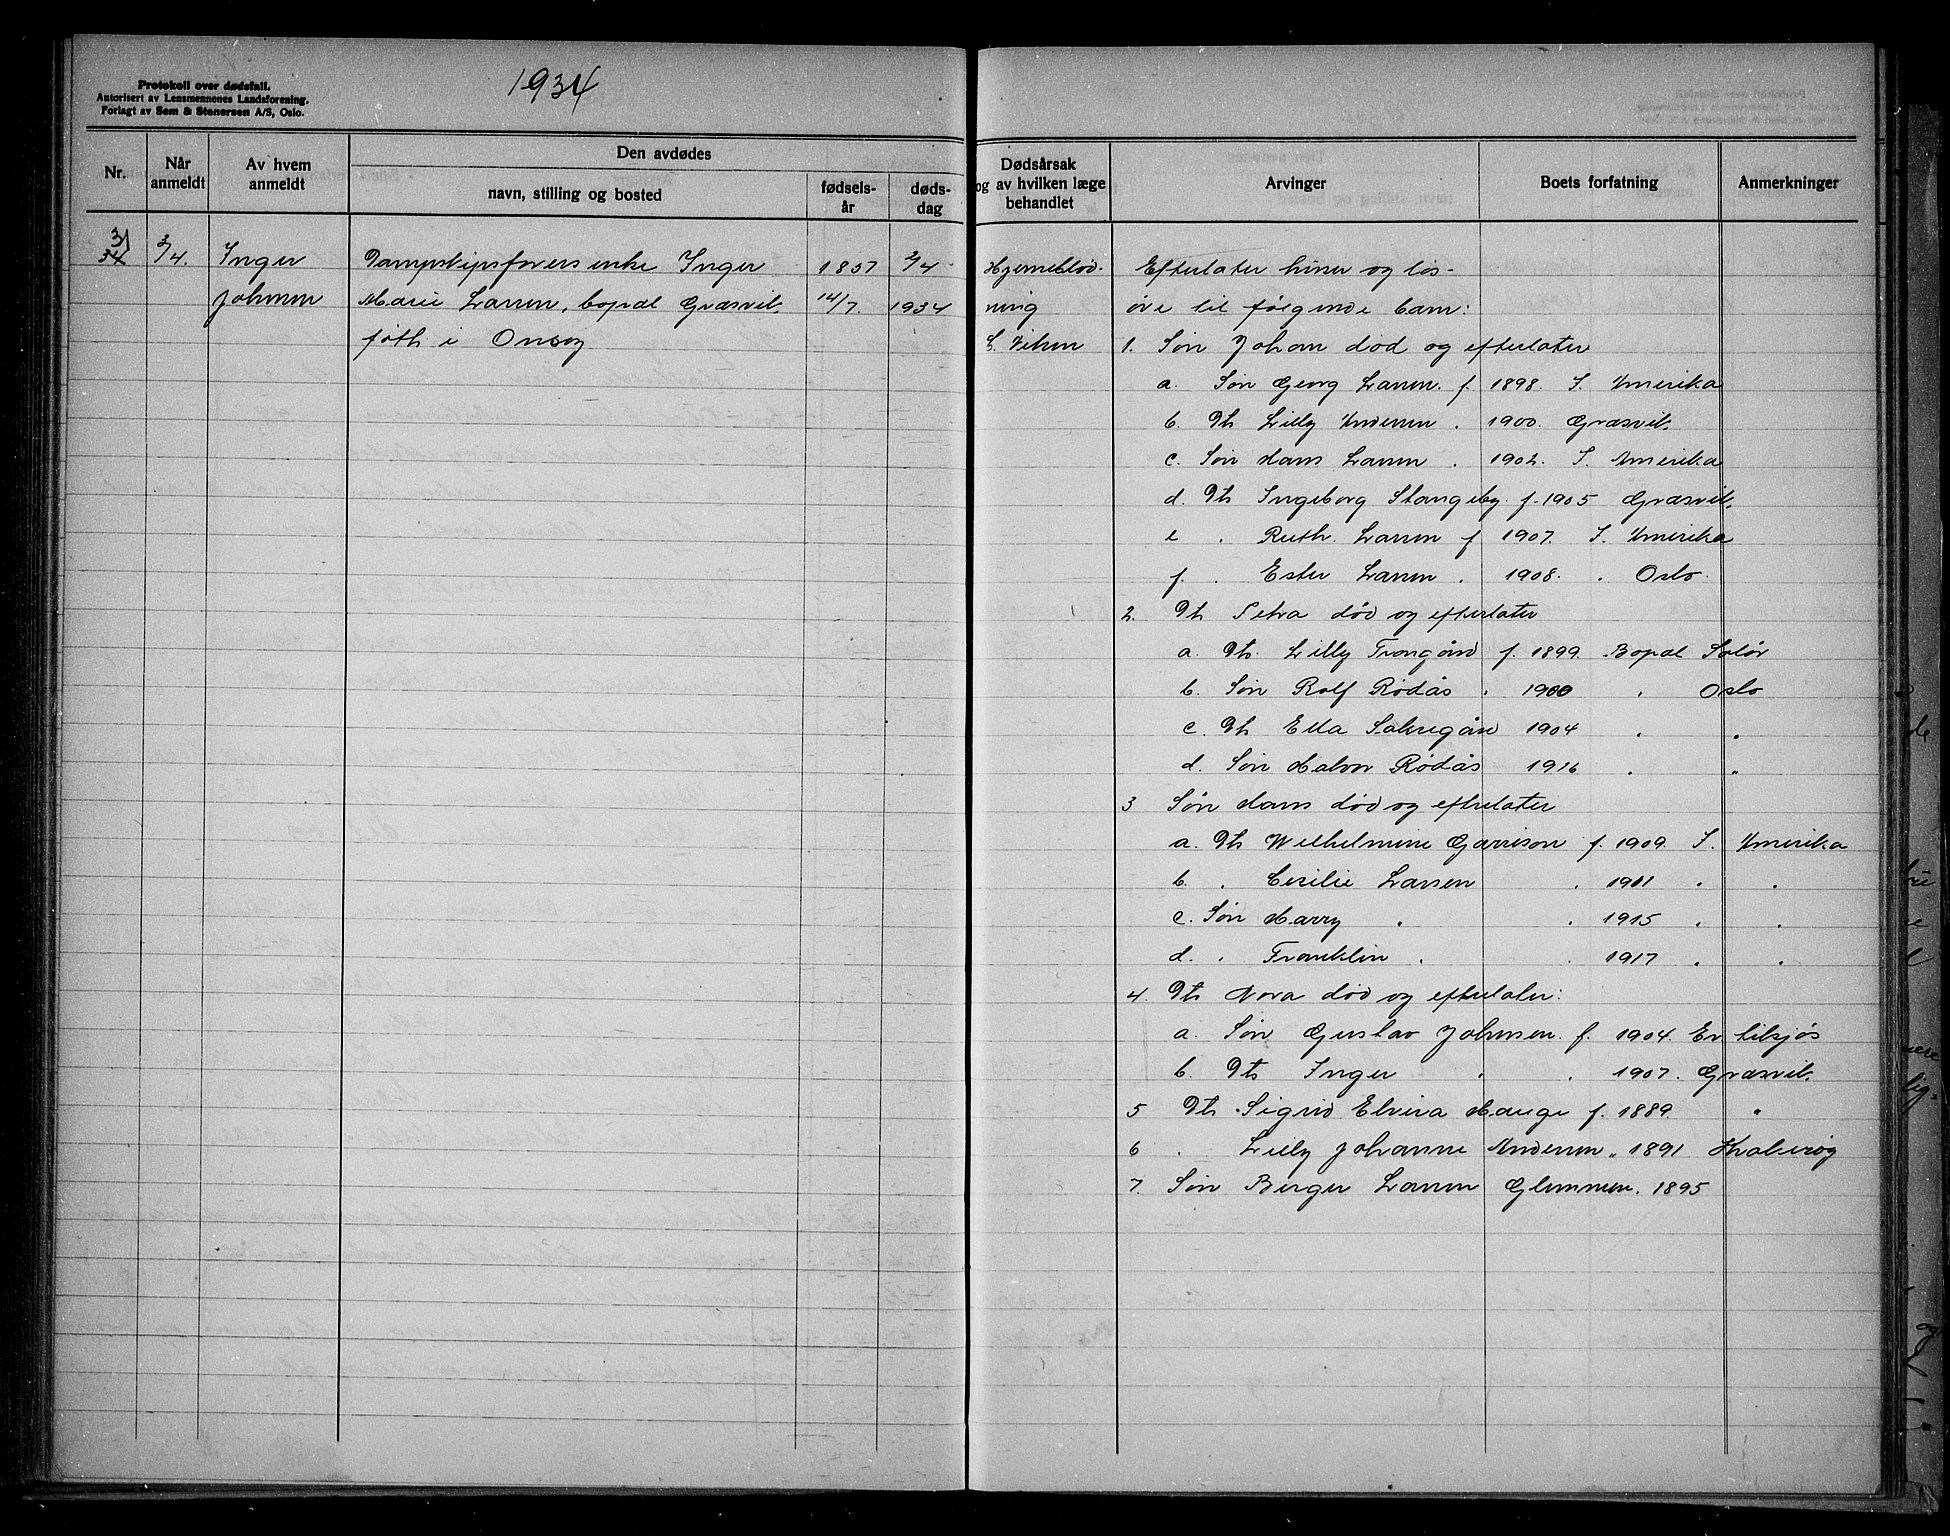 Protokoll over dødsfall.
Autorisert av Lensmennenes Landsforening.
Forlagt av Sem & Stenersen A/S, Oslo.
1934
Nr.
Når anmeldt
Av hvem anmeldt
Den avdødes
navn, stilling og bosted
fødselsår
dødsdag
Dødsårsak og av hvilken læge behandlet
Arvinger
Boets forfatning
Anmerkninger
31
34
3/4.
Inger
Johnsen
Dampskipsførers enke Inger
Marie Larsen, bopæl Græsvik,
føth i Onsøy
1857
14/7.
2/4
1934
Hjerneblød-
ning
Efterlater hiner og løs-
øve til følgende barn:
1. Søn Johan død og efterlater
a. Søn Georg Larsen. f. 1898. I. Amerika
b. Dt. Lilly Andersen . 1900. Græsvik.
c. Søn Hans Larsen . 1902. I. Amerika
d. Dt. Ingeborg Slangeby. f. 1905 Græsvik.
e . Ruth. Larsen f 1907. I. Amerika
f. . Ester Larsen . 1908. . Oslo.
2. Dt. Petra død og efterlater
a. Dt. Lilly Frangård f. 1899. Bopæl Solør
b. Søn Rolf Rødås . 1900 . Oslo
c. Dt. Ella 1904 . "
d. Søn Halvor Rødås 1916 . "
3 Søn Hans død og efterlater
a. Dt. Wilhelmine Garrison f. 1909. I. Amerika
b. . Cesilie Larsen . 1911 . .
c. Søn Harry . . 1915 . .
d. . Franklin . . 1917 . .
4. Dt. Nora død og efterlater:
a. Søn Gustav Johnsen. f. 1904. Er tilsjøs
b. Dt. Inger . . 1907. Græsvik.
5 Dt. Sigrid Elvira Hauge f. 1889. "
6 . Lilly Johanne Andersen " 1891 Kraberøy
7. Søn Birger Larsen Glemmen. 1895